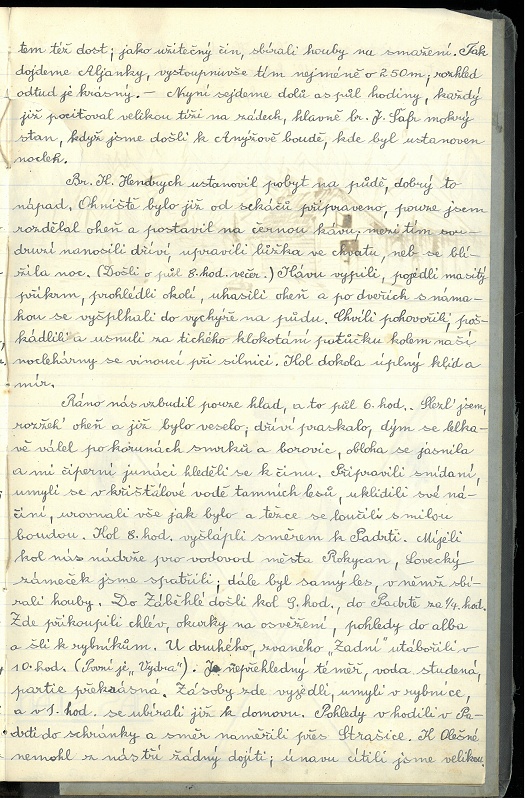 tem též dost; jako užitečný čin, sbírali houby na smažení. Tak
dojdeme Aljanky, vystoupnuvše tím nejméně o 250m; rozhled
odtud je krásný. – Nyní sejdeme dolů as půl hodiny, každý
již pociťoval velikou tíži na zádech, hlavně br. J. Šafr mokrý
stan, když jsme došli k Anýžově boudě, kde byl ustanoven
nocleh.
Br. K. Hendrych ustanovil pobyt na půdě, dobrý to
nápad. Ohniště bylo již od sekáčů připraveno, pouze jsem
rozdělal oheň a postavil na černou kávu; mezitím sou-
druzi nanosili dříví, upravili lůžka ve chvatu, neb se blí-
žila noc. (Došli o půl 8. hod. večer.) Kávu vypili, pojedli masitý
příkrm, prohlédli okolí, uhasili oheň a po dveřích s náma-
hou se vyšplhali do vychýře na půdu. Chvíli pohovořili, poš-
kádlili a usnuli za tichého klokotání potůčku kolem naší
noclehárny se vinoucí při silnici. Kol dokola úplný klid a
mír.
Ráno nás vzbudil pouze hlad, a to půl 6. hod.. Slezl jsem,
rozžeh' oheň a již bylo veselo; dříví praskalo, dým se lehka-
vě válel po korunách smrků a borovic, obloha se jasnila
a mi čiperní junáci hleděli se k činu. Připravili snídani,
umyli se v křišťálové vodě tamních lesů, uklidili své ná-
činí, urovnali vše jak bylo a těžce se loučili s milou
boudou. Kol 8. hod. vyšlápli směrem k Padrti. Míjeli
kol nás nádrže pro vodovod města Rokycan, Lovecký
zámeček jsme spatřili; dále byl samý les, v němž sbí-
rali houby. Do Záběhlé došli kol 9. hod., do Padrtě za ¼ hod.
Zde přikoupili chlév, okurky na osvěžení, pohledy do alba
a šli k rybníkům. U druhého, zvaného „Zadní" utábořili v
10. hod. (První je „Vydra"). Je nepřehledný téměř, voda studená,
partie překrásná. Zásoby zde vyjedli, umyli v rybnice,
a v 1. hod. se ubírali již k domovu. Pohledy vhodili v Pa-
drti do schránky a směr naměřili přes Strašice. K Olešné
nemohl z nás tří žádný dojíti; únavu cítili jsme velikou